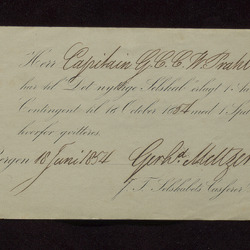 Herr Capitain G. C. C. W. Prahl
har til Det nyttige Selskab erlagt 1 Aars
Contingent til 1ste October 1854 med 1 Spd
hvorfor qvitteres.
Bergen 18 Juni 1854 Gerhd Meltzer
T. T. Selskabets Casserer